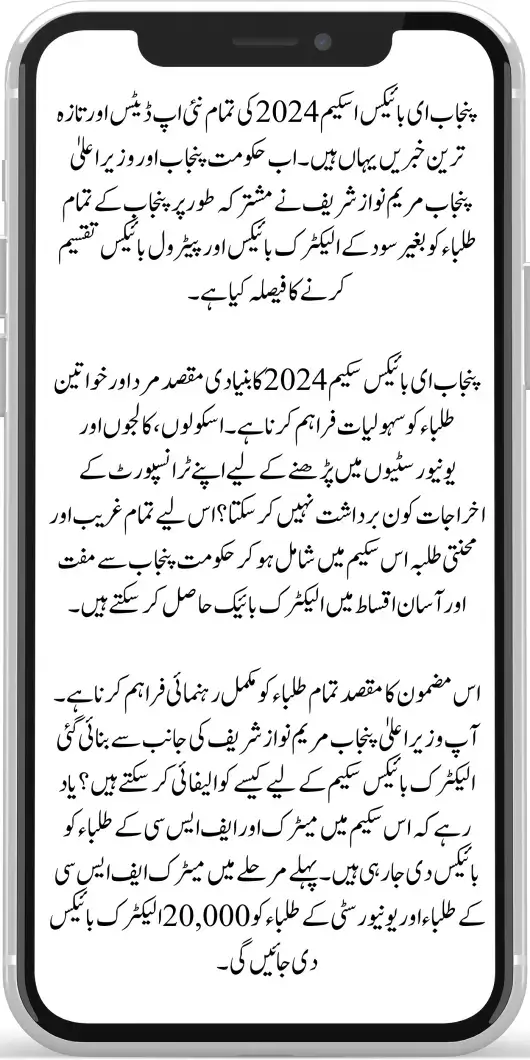 پنجاب ای بائیکس اسکیم 2024 کی تمام نئی اپ ڈیٹس اور تازہ
ترین خبریں یہاں ہیں۔ اب حکومت پنجاب اور وزیراعلیٰ
پنجاب مریم نواز شریف نے مشترکہ طور پر پنجاب کے تمام
طلباء کو بغیر سود کے الیکٹرک بائیکس اور پیٹرول بائیکس تقسیم
کرنے کا فیصلہ کیا ہے۔
پنجاب ای بائیکس سکیم 2024 کا بنیادی مقصد مرد اور خواتین
طلباء کو سہولیات فراہم کرنا ہے۔ اسکولوں، کالجوں اور
یونیورسٹیوں میں پڑھنے کے لیے اپنے ٹرانسپورٹ کے
اخراجات کون برداشت نہیں کر سکتا؟ اس لیے تمام غریب اور
محنتی طلبہ اس سکیم میں شامل ہو کر حکومت پنجاب سے مفت
اور آسان اقساط میں الیکٹرک بائیک حاصل کر سکتے ہیں۔
اس مضمون کا مقصد تمام طلباء کو مکمل رہنمائی فراہم کرنا ہے۔
آپ وزیراعلیٰ پنجاب مریم نواز شریف کی جانب سے بنائی گئی
الیکٹرک بائیکس سکیم کے لیے کیسے کوالیفائی کر سکتے ہیں؟ یاد
رہے کہ اس سکیم میں میٹرک اور ایف ایس سی کے طلباء کو
بائیکس دی جارہی ہیں۔ پہلے مرحلے میں میٹرک ایف ایس سی
کے طلباء اور یونیورسٹی کے طلباء کو 20,000 الیکٹرک بائیکس
دی جائیں گی۔